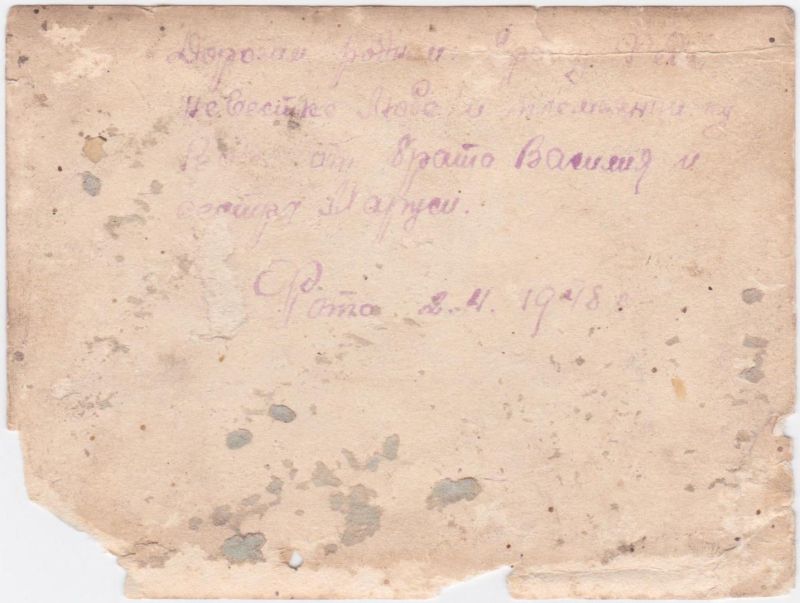 Дорогим родным брату
невестке Любе и племяннику
от брата Василия и
сестры Маруси.
Фото 2.4. 1948 г